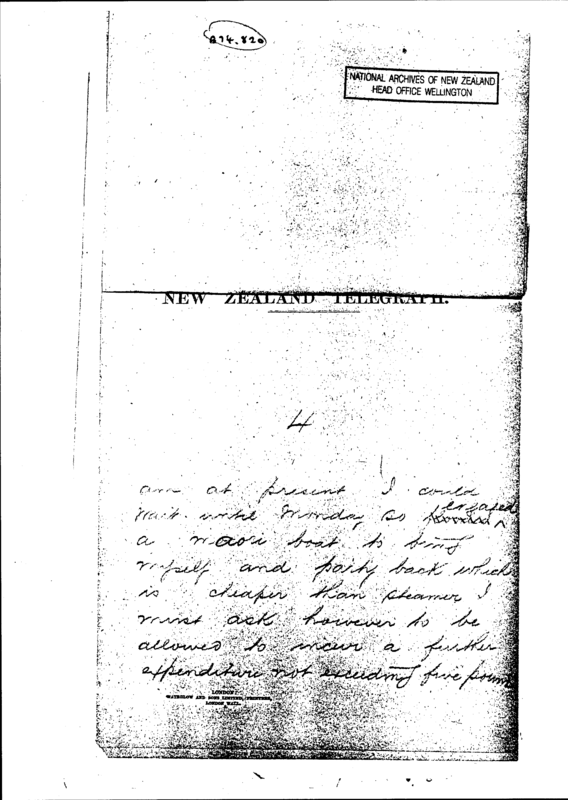 A74.820
NATIONAL ARCHIVES OF NEW ZEALAND
HEAD OFFICE WELLINGTON
NEW ZEALAND TELEGRAPH.
4
am at present I could
wait until Monday so engaged
a maori boat to bring
myself and party back which
is cheaper than steamer I
must ask however to be
allowed to incur a further
expenditure not exceeding five pound
LONDON:
WATERLOW AND SONS LIMITED, PRINTERS,
LONDON WALL.